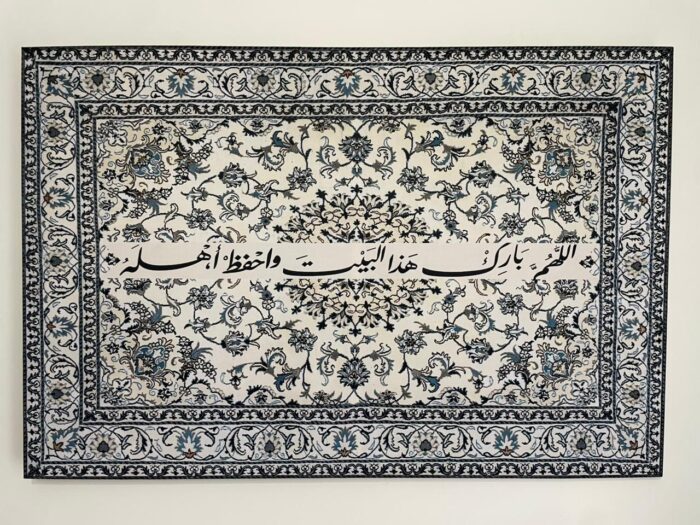 اللهم بَارِكْ هَذَا البَيْتَ وَاحْفَظْ أَهْلَهُ